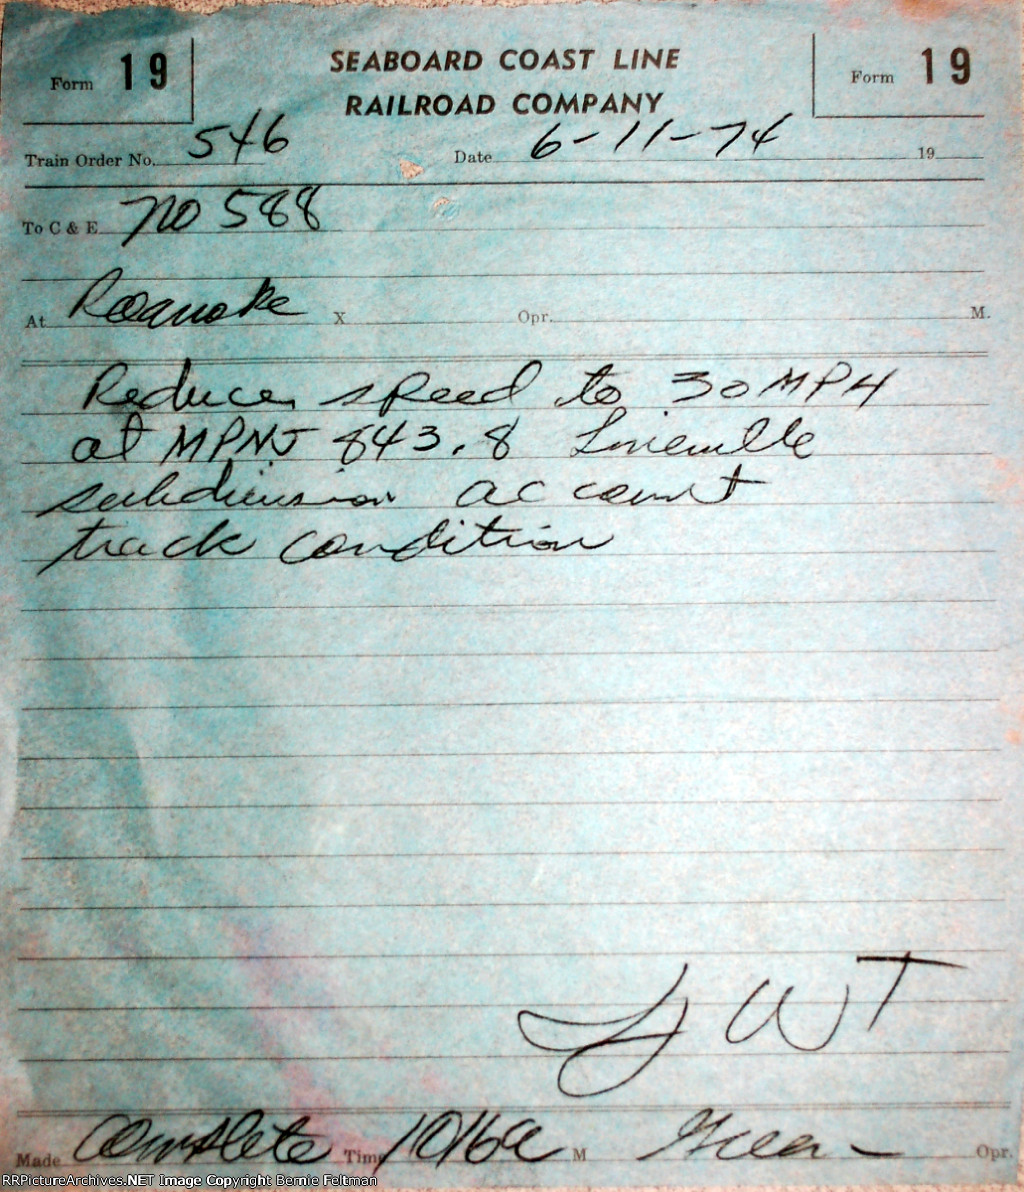 Form 19 SEABOARD COAST LINE Form 19
RAILROAD COMPANY
Train Order No. 546 Date 6-11-74 19
To C & E No 588
At Roanoke X Opr. M.
Reduce speed to 30 MPH
at MPNJ 843.8 Lineville
subdivision account
track condition
JWT
Made Complete Time 1016a M Green Opr.
RRPictureArchives.NET Image Copyright Bernie Feltman